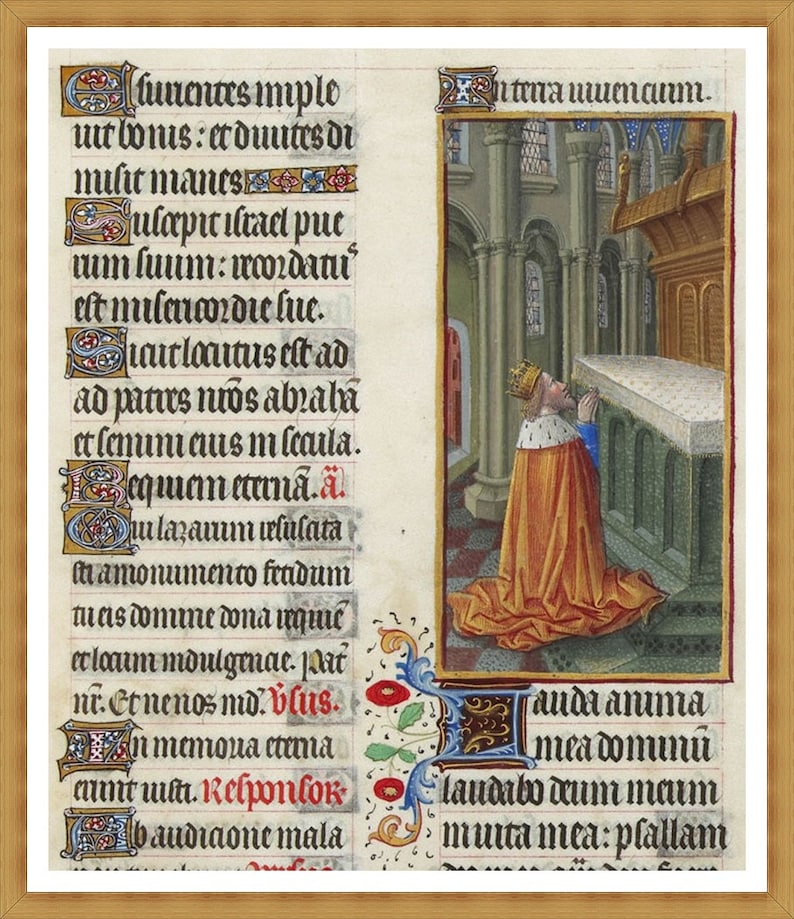 Esurientes imple
uit bonis : et diuites di
misit inanes
Suscepit israel pue
rum suum : recordatuˢ
est misericordie sue.
Sicut locutus est ad
ad patres nr̄os abrahā
et semini eius in secula.
Requiem eternā. ā.
Qui lazarum resuscita
sti a monumento fetidum
tu eis domine dona requiē
et locum indulgencie. Pat̄
nr̄. Et ne nos īd. V̄sus.
In memoria eterna
erunt iusti. Responsor.
Ab audicione mala
In terra uiuencium.
Lauda anima
mea dominū
laudabo deum meum
in uita mea : psallam